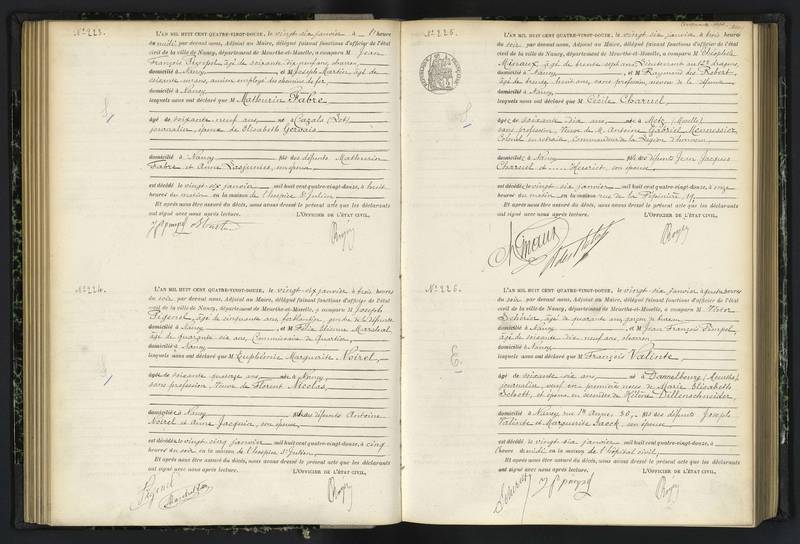 No 223.
L'AN MIL HUIT CENT QUATRE-VINGT-DOUZE, le vingt-six janvier à 1 heure
du midi par devant nous, Adjoint au Maire, délégué faisant fonctions d'officier de l'état
civil de la ville de Nancy, département de Meurthe-et-Moselle, a comparu M Jean
François Pempol, âgé de soixante dix neuf ans, charron,
domicilié à Nancy, et M Joseph Martin, âgé de
soixante ans, ancien employé des chemins de fer,
domicilié à Nancy
lesquels nous ont déclaré que M Mathurin Fabre
âgé de soixante neuf ans, né à Cazals (Lot)
journalier, époux de Elisabeth Gervais
domicilié à Nancy fils des défunts Mathurin
Fabre et Anne Lasjunies, son épouse
est décédé le vingt-six janvier mil huit cent quatre-vingt-douze, à huit
heures du matin en la maison de l'hospice St Julien
Et après nous être assuré du décès, nous avons dressé le présent acte que les déclarants
ont signé avec nous après lecture. L'OFFICIER DE L'ÉTAT CIVIL,
No 224.
L'AN MIL HUIT CENT QUATRE-VINGT-DOUZE, le vingt-six janvier à trois heures
du soir, par devant nous, Adjoint au Maire, délégué faisant fonctions d'officier de l'état
civil de la ville de Nancy, département de Meurthe-et-Moselle, a comparu M Joseph
Pegenel, âgé de cinquante ans, ferblantier, gendre de la défunte
domicilié à Nancy, et M Félix Etienne Maréchal
âgé de quarante six ans, Commissaire de Quartier,
domicilié à Nancy
lesquels nous ont déclaré que M Euphémie Marguerite Noirel,
âgée de soixante quatorze ans, née à Nancy,
sans profession, Veuve de Florent Nicolas,
domiciliée à Nancy fille des défunts Antoine
Noirel et Anne Jacquin, son épouse
est décédée le vingt cinq janvier mil huit cent quatre-vingt-douze, à cinq
heures du soir en la maison de l'hospice St Julien
Et après nous être assuré du décès, nous avons dressé le présent acte que les déclarants
ont signé avec nous après lecture. L'OFFICIER DE L'ÉTAT CIVIL,
No 225.
L'AN MIL HUIT CENT QUATRE-VINGT-DOUZE, le vingt-six janvier à trois heures
du soir, par devant nous, Adjoint au Maire, délégué faisant fonctions d'officier de l'état
civil de la ville de Nancy, département de Meurthe-et-Moselle, a comparu M Théophile
âgé de trente sept ans, Lieutenant au 12e dragons,
domicilié à Nancy, et M Raymond des Robert
âgé de trente huit ans, sans profession, neveu de la défunte
domicilié à Nancy
lesquels nous ont déclaré que M Cécile Charuel
âgée de soixante dix ans, née à Metz (Moselle)
sans profession, Veuve de M. Antoine Gabriel Mennessier,
Colonel en retraite, Commandeur de la Légion d'honneur
domiciliée à Nancy fille des défunts Jean Jacques
Charuel et ..... Heuriet, son épouse
est décédée le vingt-six janvier mil huit cent quatre-vingt-douze, à onze
heures du matin en la maison rue de la Pépinière, 19,
Et après nous être assuré du décès, nous avons dressé le présent acte que les déclarants
ont signé avec nous après lecture. L'OFFICIER DE L'ÉTAT CIVIL,
No 226.
L'AN MIL HUIT CENT QUATRE-VINGT-DOUZE, le vingt-six janvier à quatre heures
du soir, par devant nous, Adjoint au Maire, délégué faisant fonctions d'officier de l'état
civil de la ville de Nancy, département de Meurthe-et-Moselle, a comparu M Victor
âgé de quarante ans, garçon de bureau
domicilié à Nancy, et M Jean François Pempol,
âgé de soixante dix-neuf ans, charron
domicilié à Nancy
lesquels nous ont déclaré que M François Valinte
âgé de soixante six ans, né à Dannelbourg (Meurthe)
journalier, veuf en premières noces de Marie Elisabeth
Schott, et époux en secondes de Hélène Dillenschneider,
domicilié à Nancy, rue Ste Anne, 20, fils des défunts Joseph
Valinte et Marguerite Jacob, son épouse
est décédé le vingt-six janvier mil huit cent quatre-vingt-douze, à
heure de midi en la maison de l'hôpital civil,
Et après nous être assuré du décès, nous avons dressé le présent acte que les déclarants
ont signé avec nous après lecture. L'OFFICIER DE L'ÉTAT CIVIL,